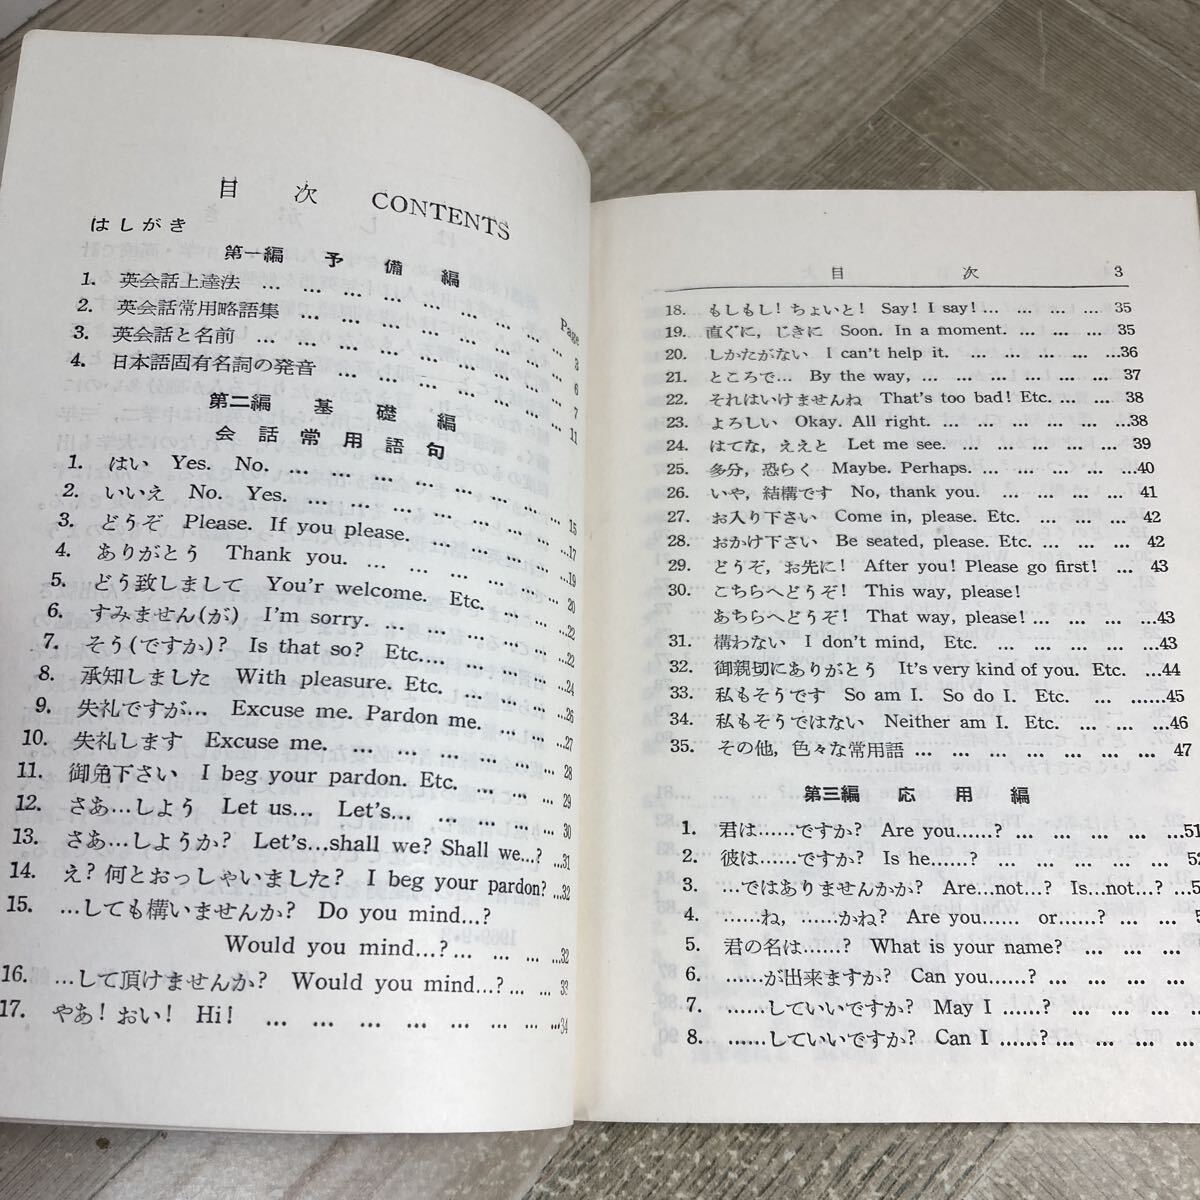 目 次 CONTENTS
はしがき
第一編 予備編
Page
1. 英会話上達法 … … … … … … … … 3
2. 英会話常用略語集 … … … … … … … 6
3. 英会話と名前 … … … … … … … … 7
4. 日本語固有名詞の発音 … … … … … … 11
第二編 基礎編
会話常用語句
1. はい Yes. No. … … … … … … … 15
2. いいえ No. Yes. … … … … … … …17
3. どうぞ Please. If you please. … … … …19
4. ありがとう Thank you. … … … … … 20
5. どう致しまして You'r welcome. Etc. … … …22
6. すみません(が) I'm sorry. … … … … … 22
7. そう(ですか)? Is that so? Etc.… … … … 24
8. 承知しました With pleasure. Etc. … … … 26
9. 失礼ですが… Excuse me. Pardon me. … …27
10. 失礼します Excuse me. … … … … … 28
11. 御免下さい I beg your pardon. Etc. … … … 29
12. さあ…しよう Let us… Let's… … … … … 30
13. さあ…しようか? Let's…shall we? Shall we…? …31
14. え? 何とおっしゃいました? I beg your pardon? …32
15. …しても構いませんか? Do you mind…?
Would you mind…? … … … …32
16. …して頂けませんか? Would you mind…? … … 33
17. やあ! おい! Hi! … … … … … … … …34
目 次 3
18. もしもし! ちょいと! Say! I say! … … … … 35
19. 直ぐに, じきに Soon. In a moment. … … … …35
20. しかたがない I can't help it. … … … … …36
21. ところで… By the way, … … … … … … 37
22. それはいけませんね That's too bad! Etc. … … 38
23. よろしい Okay. All right. … … … … … …38
24. はてな, ええと Let me see. … … … … … 39
25. 多分, 恐らく Maybe. Perhaps. … … … … …40
26. いや, 結構です No, thank you. … … … … 41
27. お入り下さい Come in, please. Etc. … … … 42
28. おかけ下さい Be seated, please. Etc. … … … 42
29. どうぞ, お先に! After you! Please go first! … 43
30. こちらへどうぞ! This way, please!
あちらへどうぞ! That way, please! … … … …43
31. 構わない I don't mind, Etc. … … … … … 43
32. 御親切にありがとう It's very kind of you. Etc. …44
33. 私もそうです So am I. So do I. Etc. … ……45
34. 私もそうではない Neither am I. Etc. … … … 46
35. その他, 色々な常用語 … … … … … … … 47
第三編 応用編
1. 君は……ですか? Are you……? … … … … …51
2. 彼は……ですか? Is he……? … … … … …
3. …ではありませんかか? Are…not…? Is…not…? …
4. ……ね, ……かね? Are you…… or……? … … …
5. 君の名は……? What is your name? … … …
6. ……が出来ますか? Can you……? … … … …
7. ……していいですか? May I ……? … … … …
8. ……していいですか? Can I ……?… … … … …